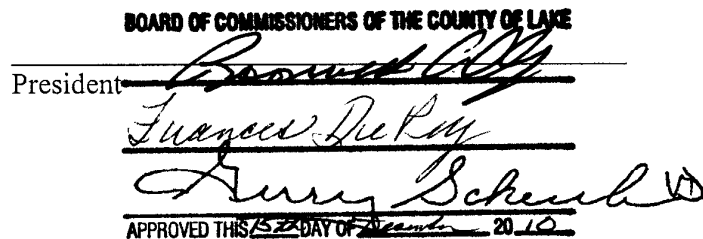 BOARD OF COMMISSIONERS OF THE COUNTY OF LAKE
President Roosevelt Allen
Frances DuPey
Gerry Scheub
APPROVED THIS 15th DAY OF December 2010